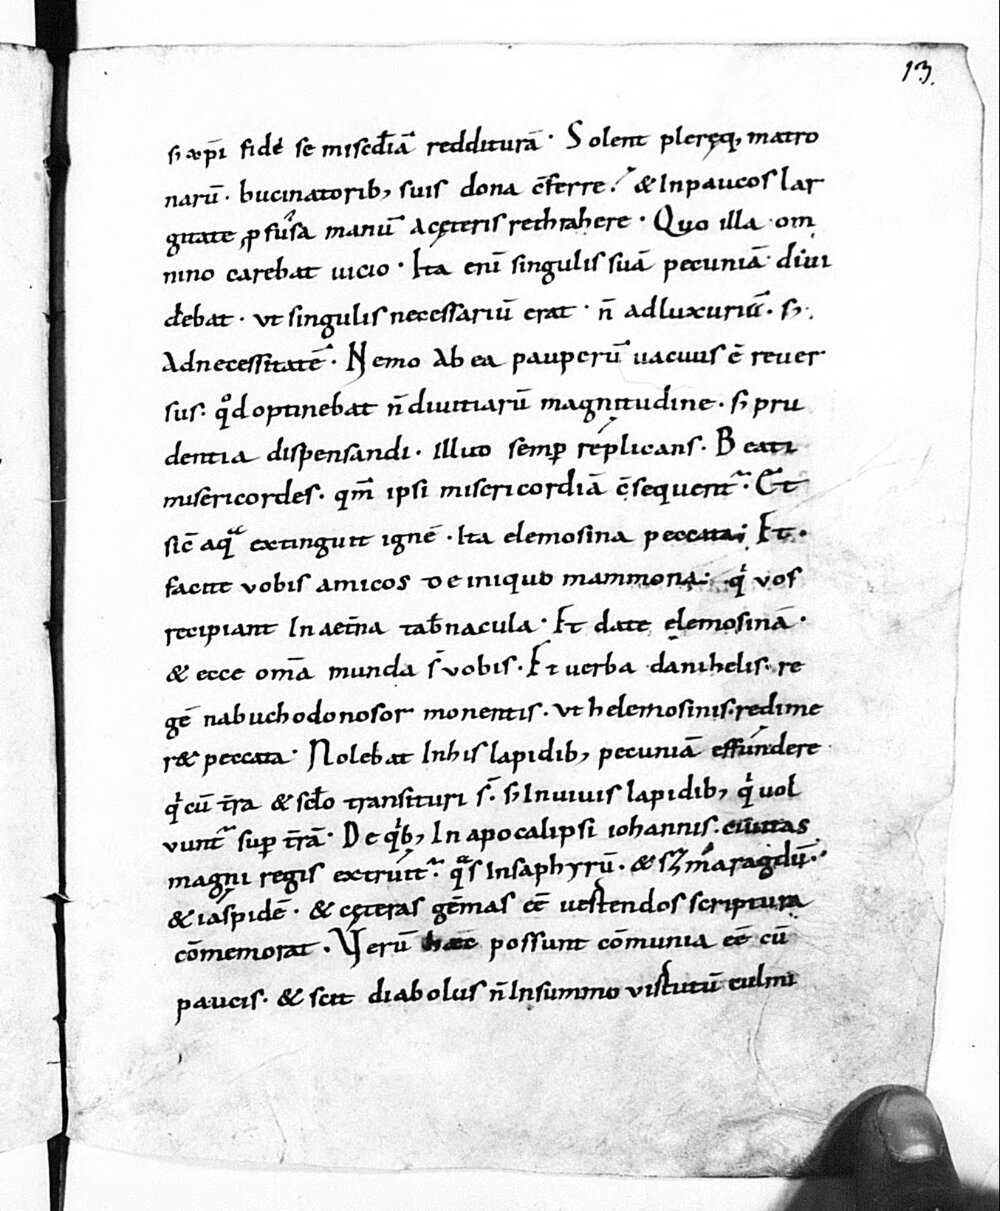 13.
s; xp̄i fidē se misc̄dīā redditurā· Solent pleręq; matro
narū· bucinatorib; suis dona c̄ferre· & Inpaucos lar
gitate ꝓfusa manū Acęteris rethrahere· Quo illa om
nino carebat uicio· Ita enī singulis suā pecuniā diui
debat· vt singulis necessariū erat· n̄ adluxuriā· s;
Adnecessitatē· Nemo Ab ea pauperū uacuus ē reuer
sus· qd̊ optinebat n̄ diuitiarū magnitudine· s; pru
dentia dispensandi· illud semꝑ replicans· Beati
misericordes· qm̄ ipsi misericordiā c̄sequent᷑· Et
sic̄ aqͣ extinguit ignē· Ita elemosina peccata; Et·
facite vobis amicos de iniquo mammona· qͥ vos
recipiant In aet̄na tab̄nacula· Et date elemosinā·
& ecce om̄a munda s̄ vobis· Et uerba danihelis· re
gē nabuchodonosor monentis· vt helemosinis· redime
r& peccata· Nolebat Inhis lapidib; pecuniā effundere
qͥ cū t̄ra & sc̄lo transituri s̄· s; Inuiuis lapidib; qͥ uol
vunt᷑ suꝑ t̄rā· De qͥb; In apocalipsi iohannis· ciuitas
magni regis extruit᷑· qͣs Insaphyrū· & smaragdū·
& iaspidē· & cęteras gēmas eē uestendos scriptura
cōmemorat· Verū hæc possunt cōmunia eē cū
paucis· & scit diabolus n̄ Insummo virtutū culmi